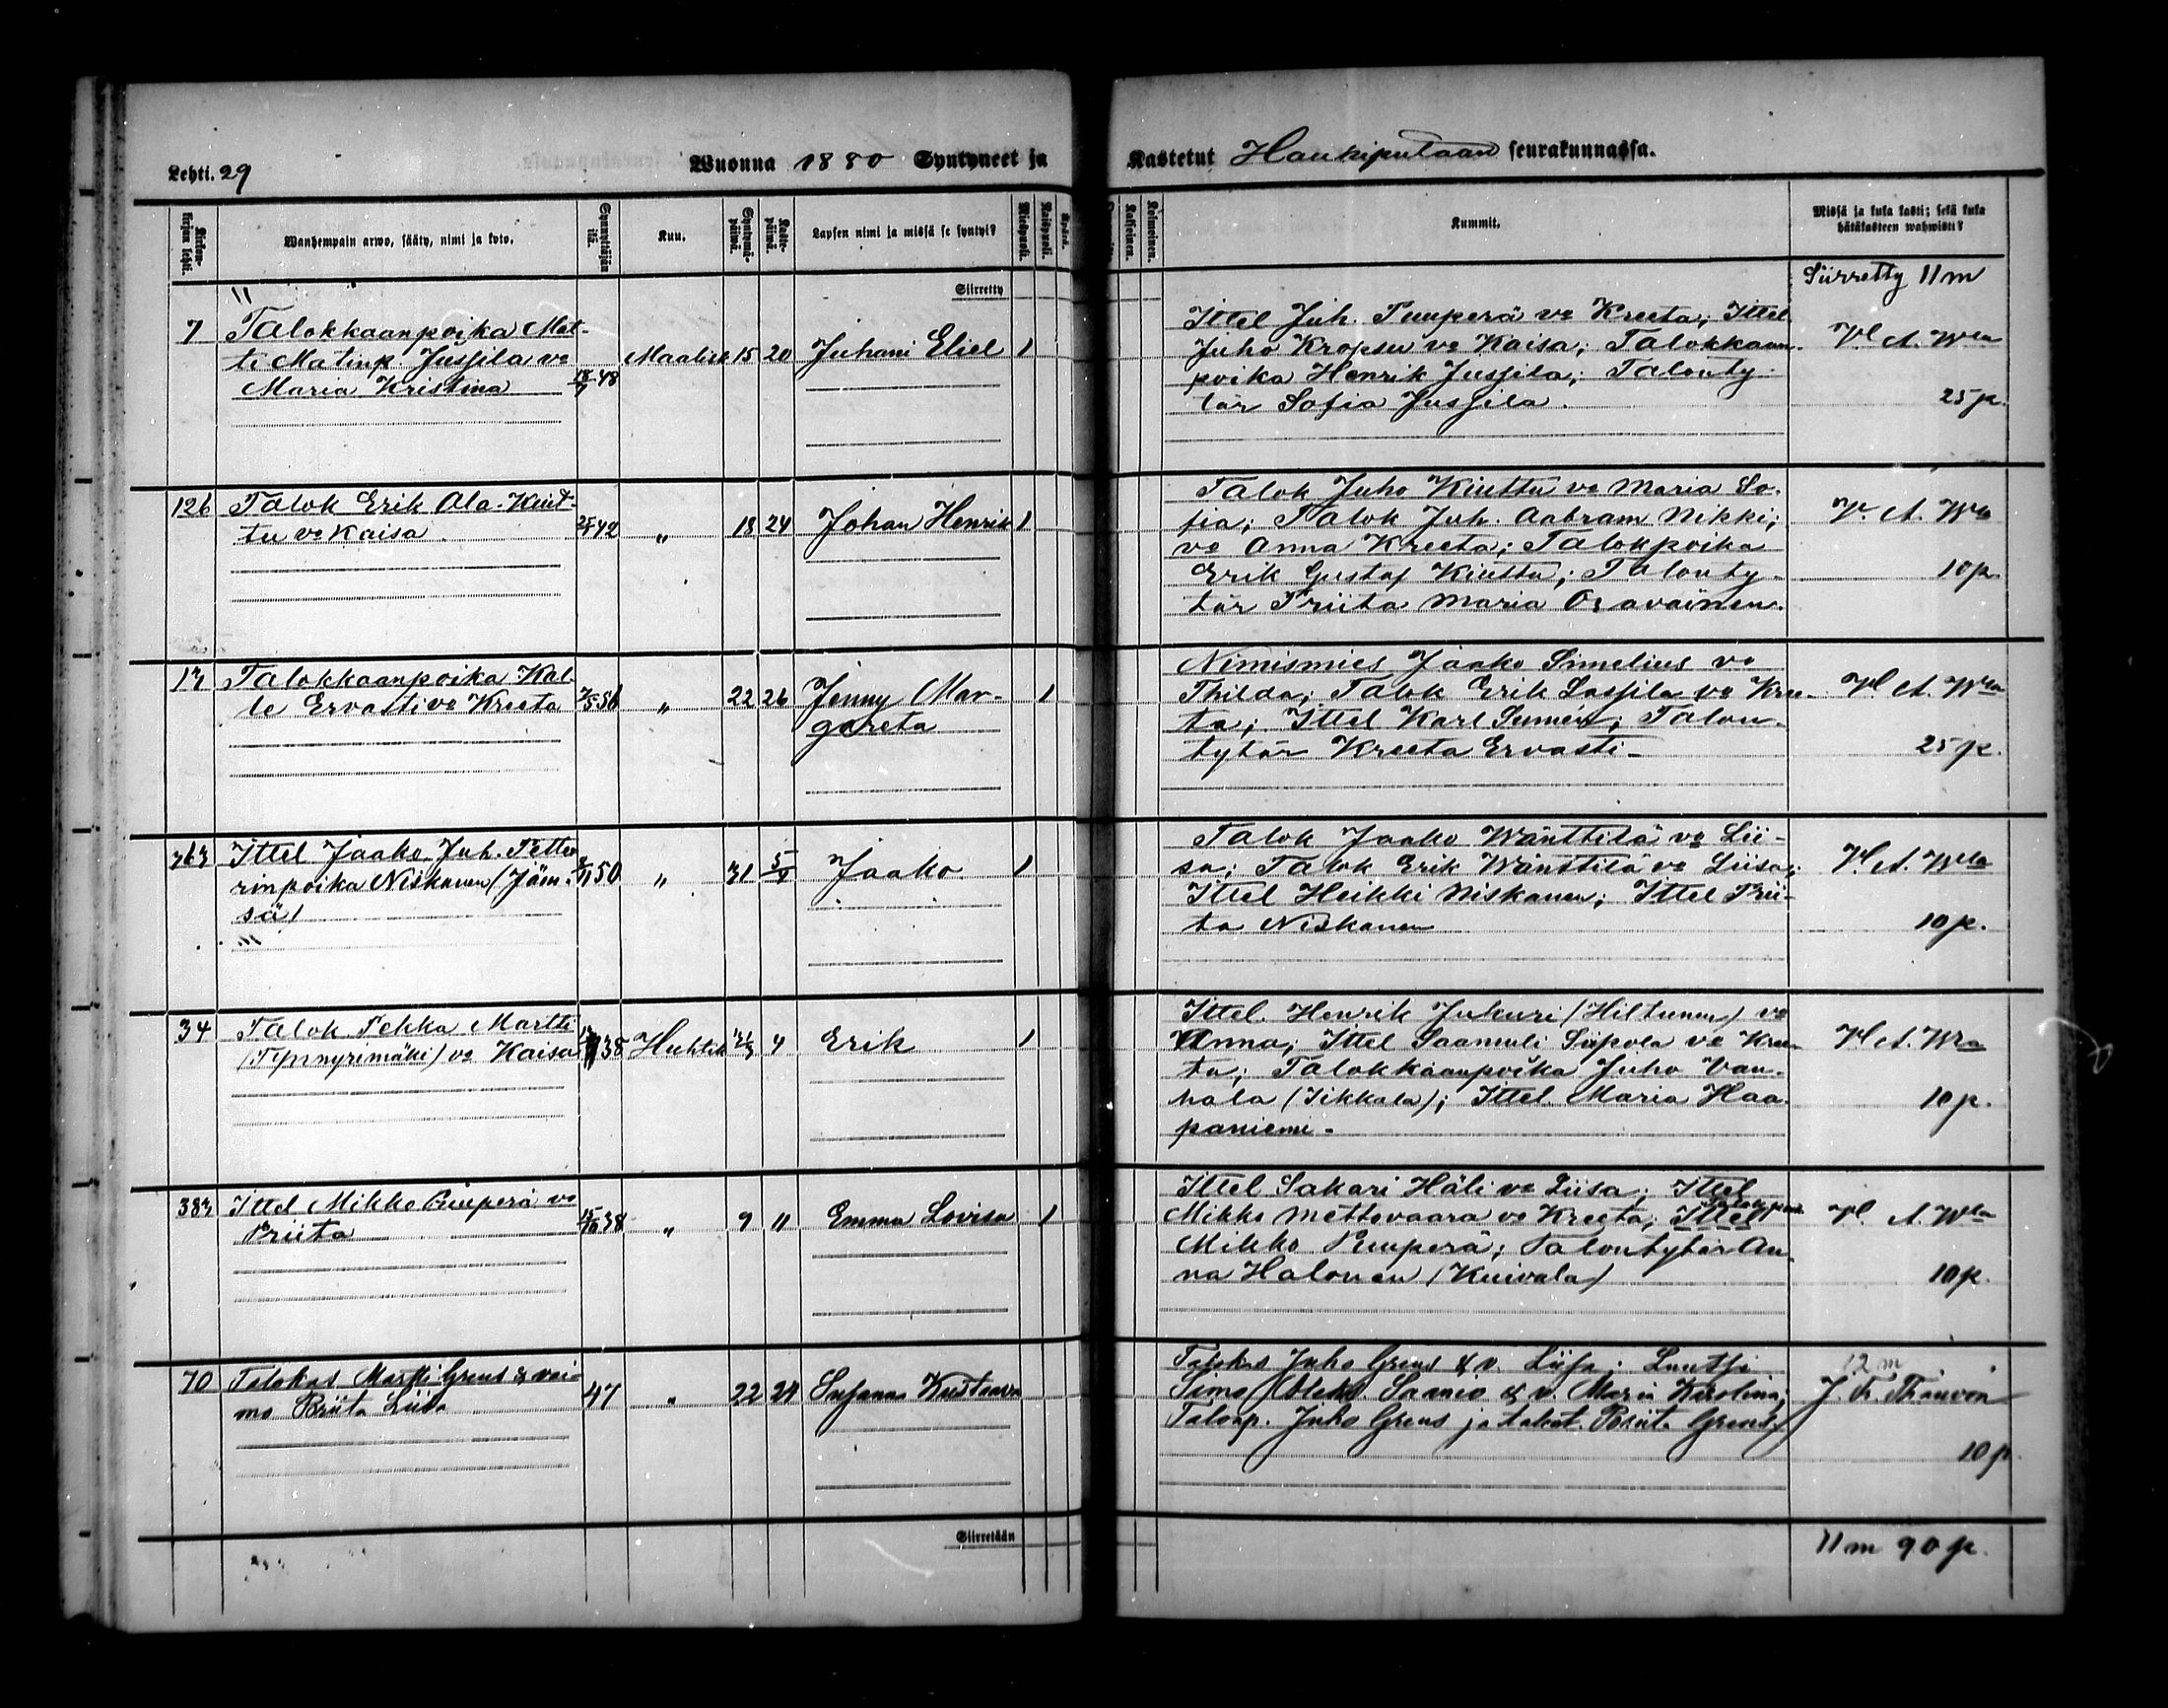 Lehti. 29
Wuonna 1880 Syntyneet ja
Kastetut Haukiputaan seurakunnassa.
Kirkon-
kirjan lehti.
Wanhempain arwo, sääty, nimi ja koto.
Synnyttäjän
ikä.
Kuu.
Syntymä-
päiwä.
Kaste-
päiwä.
Lapsen nimi ja missä se syntyi?
Miespuoli.
Waispuoli.
Kaksoinen.
Kolmoinen.
Kummit.
Missä ja kuka kasti; sekä kuka
hätäkasteen wahwisti?
Siirretty
Siirretty 11 m
7 Talokkaanpoika Mat-
ti Matinp. Jussila vo
Maria Kristina 18/7 48
Maalisk 15 20 Juhani Eliel 1
Ittel Juh. Puuperä vo Kreeta; Ittel
Juho Kropsu vo Kaisa; Talokkaan-
poika Henrik Jussila; Talonty-
tär Sofia Jussila.
25 p.
126 Talok Erik Ala-Kiut-
tu vo Kaisa 42 " 18 24 Johan Henrik 1
Talok Juho Kiuttu vo Maria So-
fia; Talok Juh. Aabram Nikki;
vo Anna Kreeta; Talokpoika
Erik Gustaf Kiuttu; Talonty-
tär Priita Maria Oravainen.
10 p.
13 Talokkaanpoika Kal-
le Ervasti vo Kreeta 56 " 22 26 Jenny Mar-
gareta 1
Nimismies Jaako Simelius vo
Thilda; Talok Erik Sassila vo Kree-
ta; Ittel Karl Sumén; Talon-
tytär Kreeta Ervasti-
25 p.
363 Ittel Jaako Juh. Pette-
rinpoika Niskanen (Jäm-
sä) 50 " 31 5/4 Jaako 1
Talok Jaako Wänttilä vo Lii-
sa; Talok Erik Wänttilä vo Liisa;
Ittel Heikki Niskanen; Ittel Prii-
ta Niskanen
10 p.
34 Talok Pekka Martti
(Typpyrämäki) vo Kaisa 38 Huhtik 4 Erik 1
Ittel. Henrik Jukuri (Hiltunen) vo
Anna; Ittel Saamuli Siipola vo Kree-
ta; Talokkaanpoika Juho Van-
hala (Iikkala); Ittel Maria Haa-
paniemi-
10 p.
383 Ittel Mikko Puuperä vo
Priita 15/10 38 " 9 11 Emma Lovisa 1
Ittel Sakari Häli vo Liisa; Ittel
Mikko Mettovaara vo Kreeta; Ittel
Mikko Puuperä; Talontytär An-
na Halonen (Kuivala)
10 p.
70 Talokas Martti Greus & vai-
mo Briita Liisa 47 " 22 24 Susanna Kustaava
Talokas Juho Greus & v. Liisa; Lautsi
Simo Aleks. Samio & v. Maria Karolina;
Talonp. Juho Greus ja talont. Briita Greus
12 m
10 p
Siirretään
11 m 90 p.